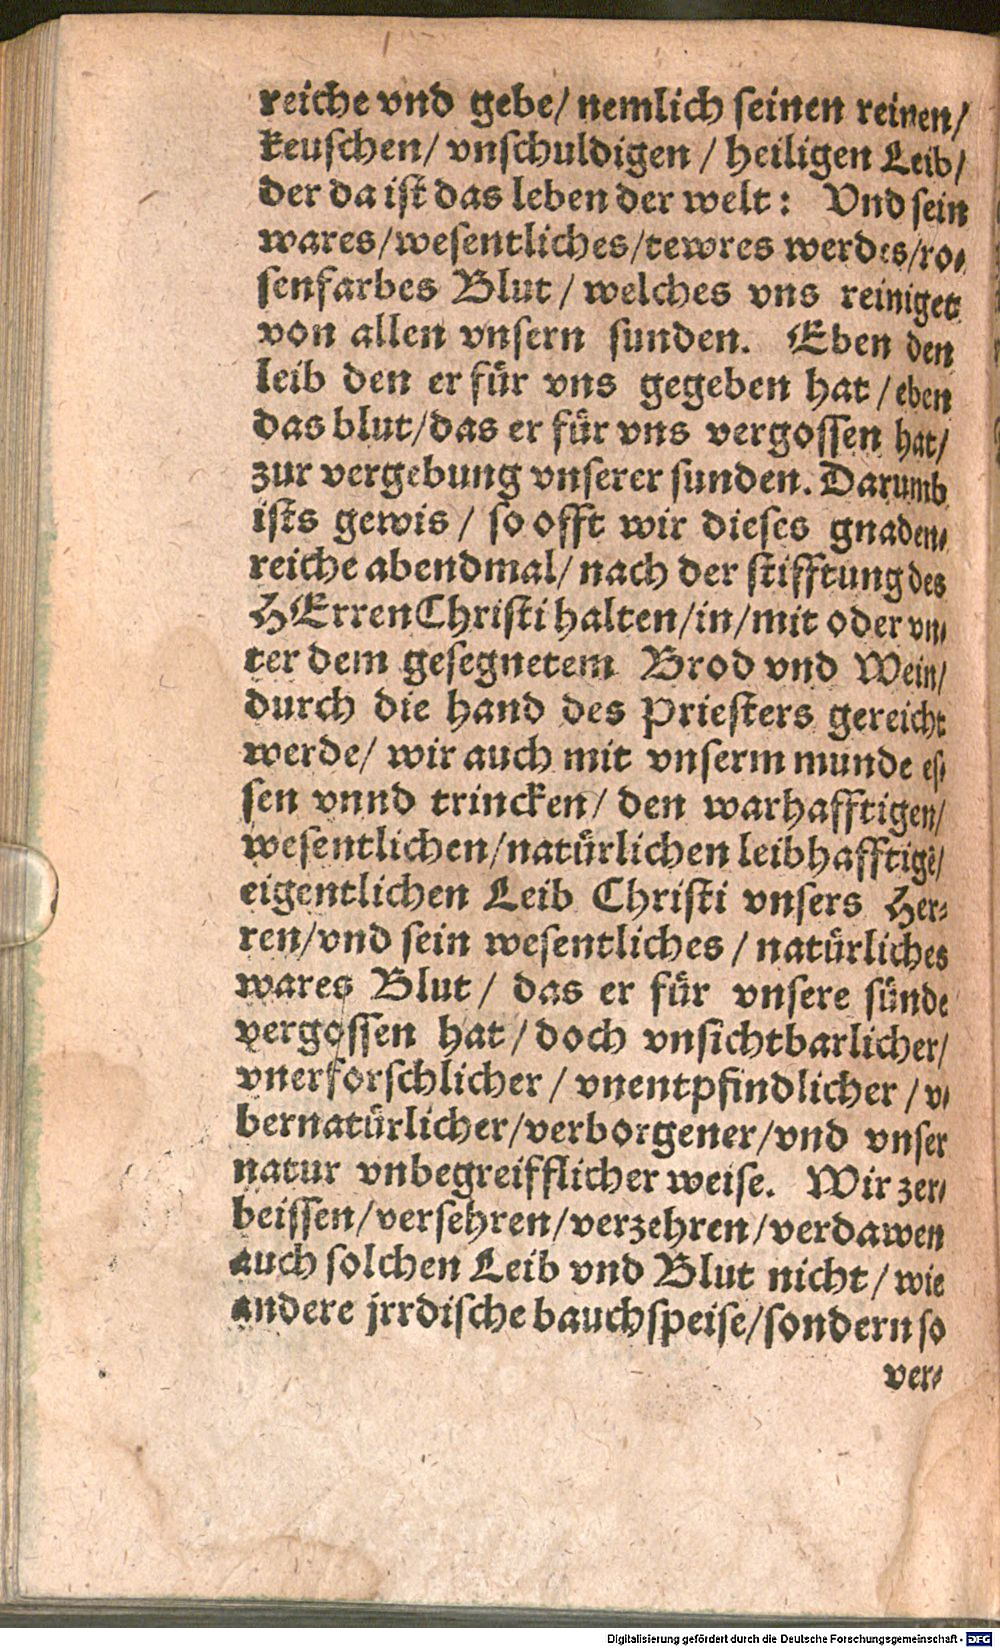 reiche vnd gebe/ nemlich seinen reinen/
keuschen/ vnschuldigen / heiligen Leib/
der da ist das leben der welt: Vnd sein
wares/wesentliches/tewres werdes/ro-
senfarbes Blut / welches vns reiniget
von allen vnsern sunden. Eben den
leib den er für vns gegeben hat / eben
das blut/das er für vns vergossen hat/
zur vergebung vnserer sunden. Darumb
ists gewis / so offt wir dieses gnaden-
reiche abendmal/ nach der stifftung des
HErren Christi halten/in/mit oder vn-
ter dem gesegnetem Brod vnd Wein/
durch die hand des Priesters gereicht
werde/ wir auch mit vnserm munde es-
sen vnnd trincken/ den warhafftigen/
wesentlichen/natürlichen leibhafftigē/
eigentlichen Leib Christi vnsers Her-
ren/vnd sein wesentliches / natürliches
wares Blut / das er für vnsere sünde
vergossen hat / doch vnsichtbarlicher/
vnerforschlicher / vnentpfindlicher / v-
bernatürlicher/verborgener/vnd vnser
natur vnbegreifflicher weise. Wir zer-
beissen/versehren/verzehren/verdawen
auch solchen Leib vnd Blut nicht / wie
andere jrrdische bauchspeise/sondern so
ver-
Digitalisierung gefördert durch die Deutsche Forschungsgemeinschaft - DFG